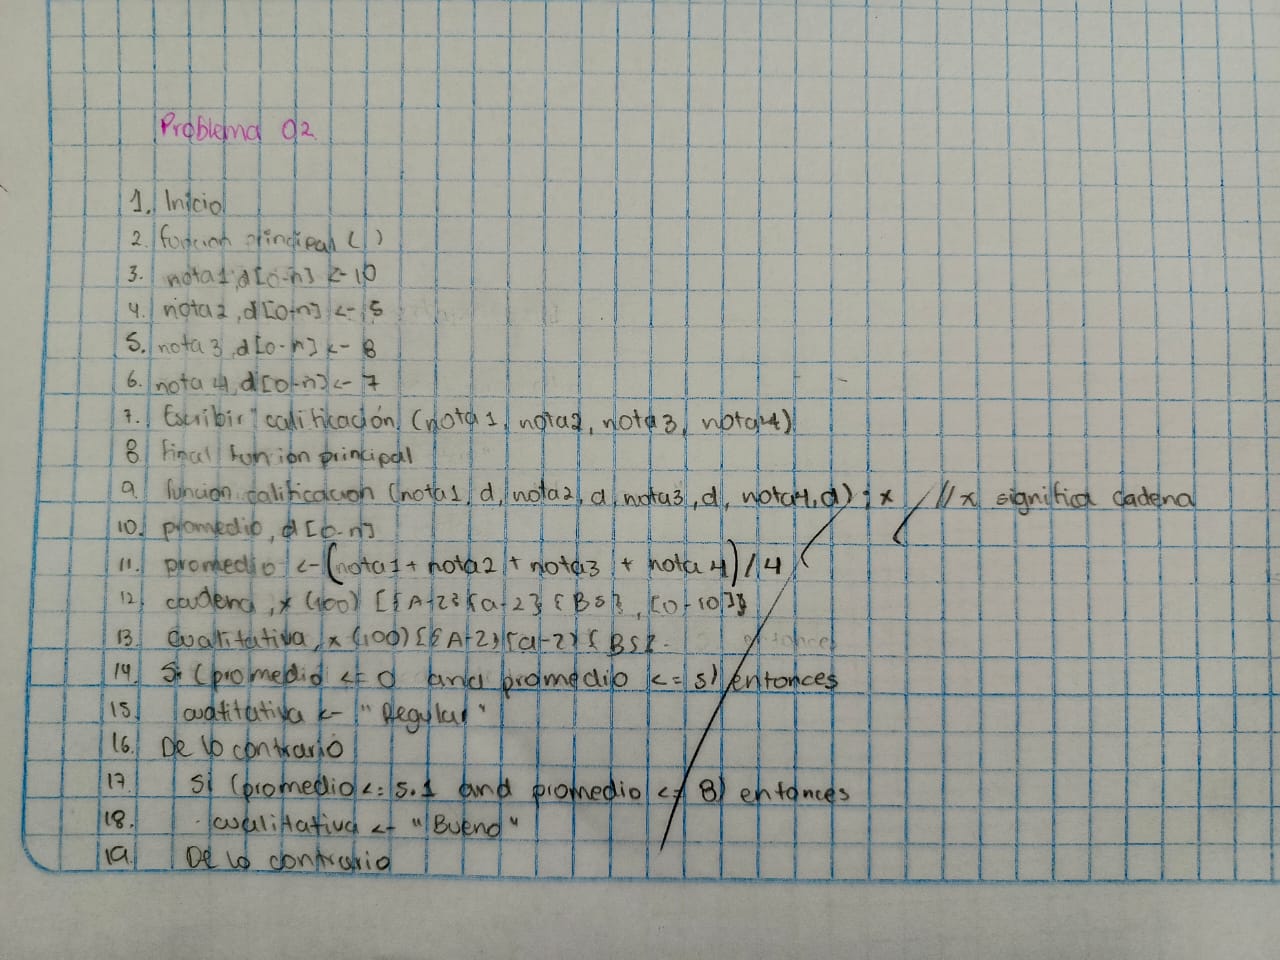 Problema 02
1. Inicio
2. función principal ( )
3. nota1,d[0-n] <- 10
4. nota2,d[0-n] <- 5
5. nota3,d[0-n] <- 8
6. nota4,d[0-n] <- 7
7. Escribir" calificación (nota1, nota2, nota3, nota4)
8. Final funion principal
9. función calificacion (nota1, d, nota2, d, nota3, d, nota4, d) : x //x significa cadena
10. promedio, d[0-n]
11. promedio <- (nota1 + nota2 + nota3 + nota4) / 4
12. cadena, x (100) [{A-z}{a-z}{BS}, [0-10]}
13. cualitativa, x (100) [{A-z}{a-z}{BS}.
14. Si (promedio <= 0 and promedio <= 5) entonces
15. cualitativa <- "Regular"
16. De lo contrario
17. Si (promedio <= 5.1 and promedio <= 8) entonces
18. cualitativa <- "Bueno"
19. De lo contrario